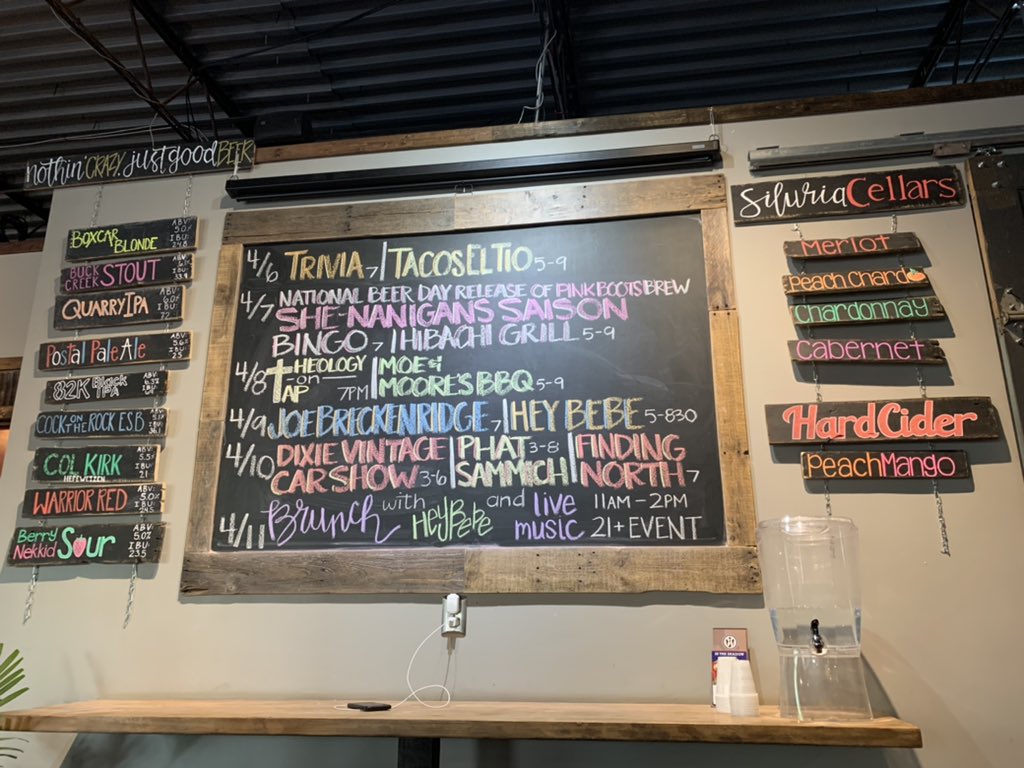 nothin' CRAZY, just good BEER
BOXCAR BLONDE
ABV: 5.0%
IBU:
BUCK CREEK STOUT
ABV:
IBU:
QUARRY IPA
ABV: 6.0%
IBU: 72
POSTAL PALE ALE
ABV: 5.6%
IBU:
82K Black IPA
ABV:
IBU:
COCK ON THE ROCK E.S.B
ABV:
IBU:
COL. KIRK
HEFEWEIZEN
ABV: 5.5%
IBU: 21
WARRIOR RED
ABV: 5.0%
IBU:
Berry Nekkid Sour
ABV: 5.0%
IBU: 23.5
4/6 TRIVIA 7 | TACOS EL TIO 5-9
4/7 NATIONAL BEER DAY RELEASE OF PINK BOOTS BREW
SHE-NANIGANS SAISON
BINGO 7 | HIBACHI GRILL 5-9
4/8 THEOLOGY -on- TAP 7PM | MOE & MOORE'S BBQ 5-9
4/9 JOE BRECKENRIDGE 7 | HEY BEBE 5-830
4/10 DIXIE VINTAGE CAR SHOW 3-6 | PHAT SAMMICH 3-8 | FINDING NORTH 7
4/11 Brunch with HeyBebe and live music 11AM-2PM 21+ EVENT
Siluria Cellars
Merlot
Peach Chard
Chardonnay
Cabernet
Hard Cider
Peach Mango